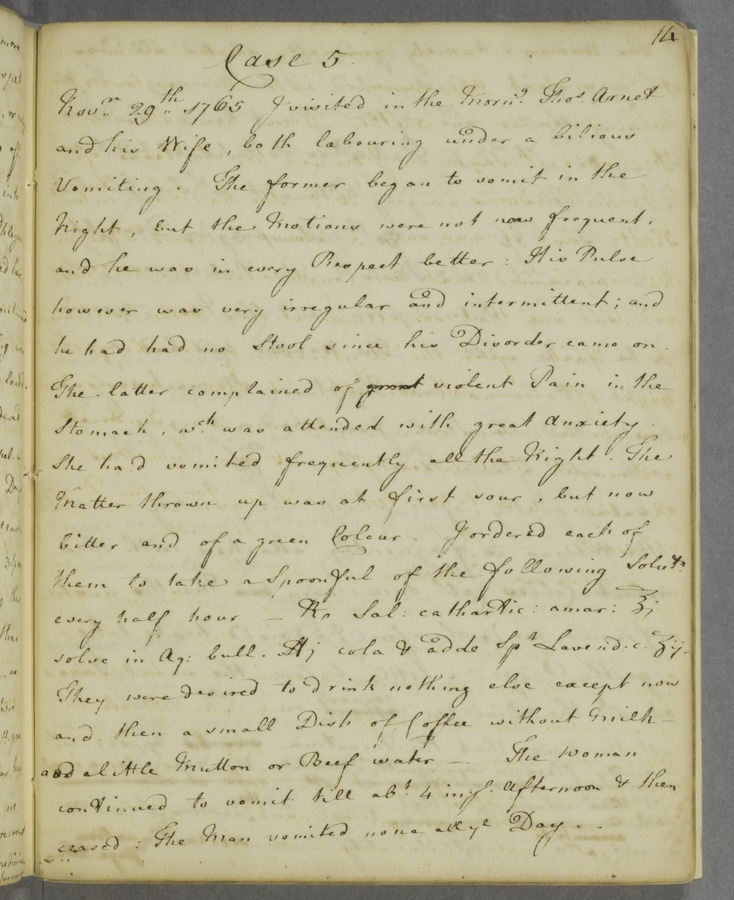 14
Case 5.
Novr. 29th. 1765 I visited in the Morng. Thos. Arnet
and his Wife, both labouring under a bilious
Vomiting. The former began to vomit in the
Night, but the Motions were not now frequent,
and he was in every Respect better: His Pulse
however was very irregular and intermittent; and
he had had no Stool since his Disorder came on.
The latter complained of great violent Pain in the
Stomach, wch. was attended with great Anxiety.
She had vomited frequently all the Night. The
Matter thrown up was at first sour, but now
bitter and of a green Colour. I ordered each of
them to take a Spoonful of the following Solutn
every half hour — Rx Sal: cathartic: amar: ℥j
solve in Aq: bull. ℔j cola & adde Spt Lavend. c. ʒij.
They were desired to drink nothing else except now
and then a small Dish of Coffee without Milk —
and a little Mutton or Beef water — The Woman
continued to vomit till abt. 4 in ye. Afternoon & then
ceased: The Man vomited none all ye Day.